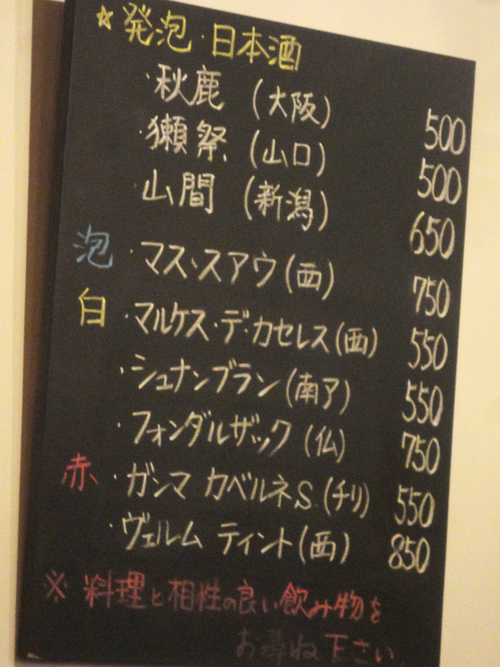 ☆発泡・日本酒
・秋鹿 (大阪) 500
・獺祭 (山口) 500
・山間 (新潟) 650
泡 ・マス・スアウ(西) 750
白 ・マルケス・デ・カセレス(西) 550
・シュナンブラン(南ア) 550
・フォンダルザック(仏) 750
赤 ・ガンマ カベルネS.(チリ) 550
・ヴェルム ティント(西) 850
※ 料理と相性の良い飲み物を
お尋ね下さい